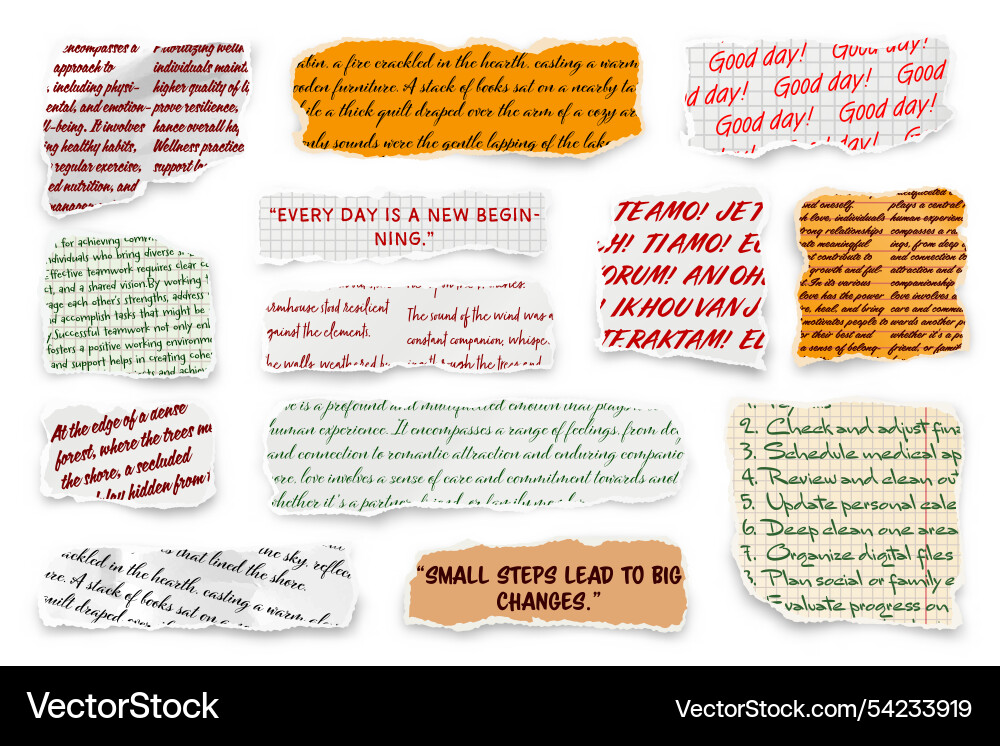 encompasses a
approach to
including physi-
ental, and emotion-
l-being. It involves
ng healthy habits,
regular exercise,
ed nutrition, and
Prioritizing
individuals
higher quality of
prove resilience,
hance overall
Wellness practice
support
abin, a fire crackled in the hearth, casting a warm
ooden furniture. A stack of books sat on a nearby ta
ile a thick quilt draped over the arm of a cozy ar
only sounds were the gentle lapping of the lake
Good day! Good day!
Good day! Good
d day! Good day!
Good day!
"EVERY DAY IS A NEW BEGIN-
NING."
TEAMO! JE T
H! TI AMO!
ORUM! ANI OH
IK HOU VAN J
TERAKTAM!
nd oneself.
h love, individuals
rong relationships
te meaningful
t contribute to
growth and ful-
t. In its various
love has the power
e, heal, and bring
motivates people to
r their best and
a sense of belong-
plays a central
human experien
compasses a
ings, from deep
and connection to
attraction and
companionship
love involves a
care and commi
wards another
whether it's a
friend, or
for achieving
dividuals who bring diverse
Effective teamwork requires clear
t, and a shared vision. By working
age each other's strengths, address
d accomplish tasks that might be
Successful teamwork not only
fosters a positive working environm
and support helps in creating
rmhouse stood resilient
gainst the elements.
the walls, weathered
The sound of the wind was a
constant companion, whispe
through the trees and
At the edge of a dense
forest, where the trees
the shore, a secluded
hidden from
ve is a profound and
human experience. It encompasses a range of feelings, from
and connection to romantic attraction and enduring companio
ore, love involves a sense of care and commitment towards
whether it's a partner, friend, or family
2. Check and adjust
3. Schedule medical ap
4. Review and clean out
5. Update personal cale
6. Deep clean one area
7. Organize digital files
Plan social or family e
Evaluate progress on
that lined the shore.
the sky, reflec
ackled in the hearth, casting a warm
re. A stack of books sat on a
quilt draped over the
"SMALL STEPS LEAD TO BIG
CHANGES."
VectorStock
VectorStock.com/54233919